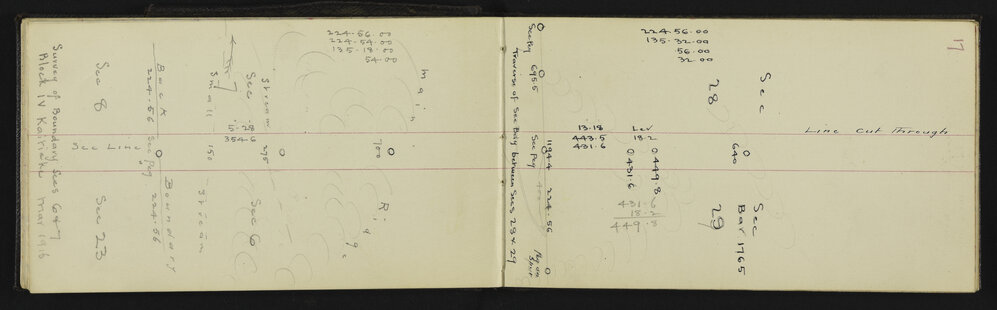 Survey of Boundary Secs 6 & 7
Block IV Mar 1918
Sec 8
Sec 23
Sec Line
Back
224.56
Sec Peg
Boundary
224.56
Small
150
Stream
Sec 7
5.28
354.6
Stream
275
Sec 6
224.56.00
224.54.00
135.18.00
54.00
Main
700
Ridge
Traverse of Sec Bdy between Secs 28 & 29
Sec Peg
695.5
Sec Peg
1194.4
400
224.56
Peg on Spur
13.18
443.5
431.6
Lev
18.2
0 449.8
0 431.6
431.6
18.2
449.8
224.56.00
135.32.00
56.00
32.00
Sec 28
640
Sec 29
Bar 1765
17
Line cut through